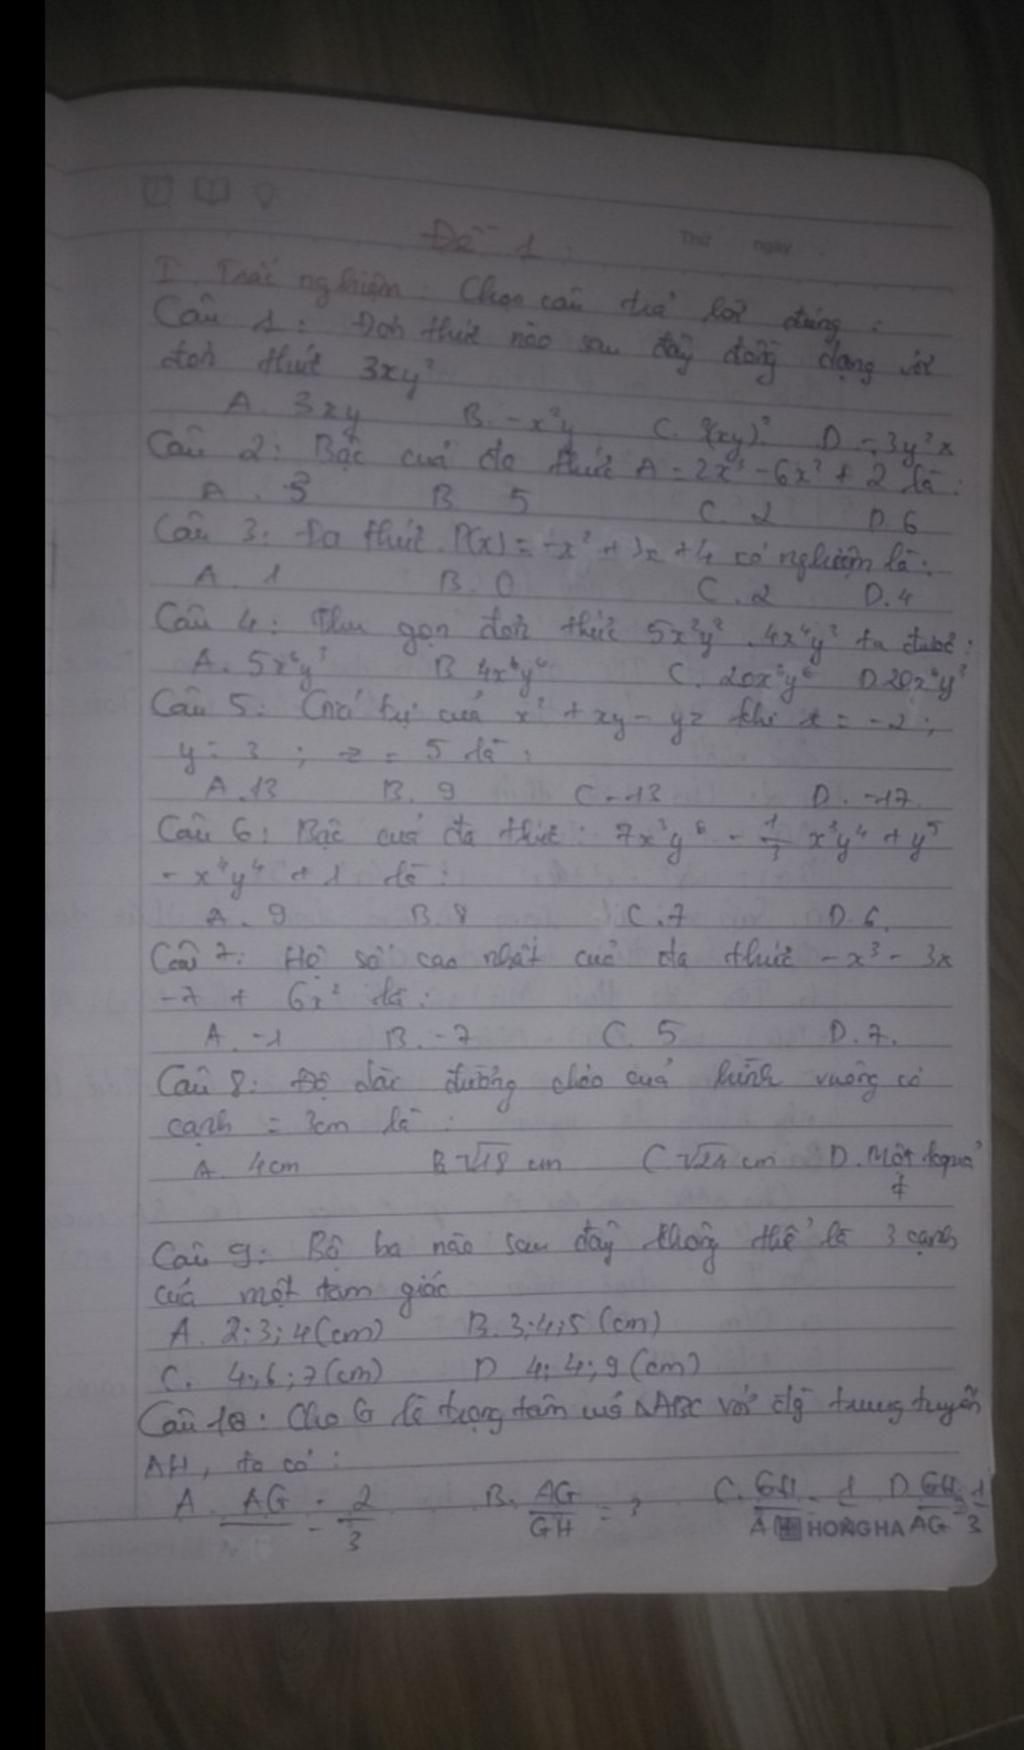 Thứ ngày
Đề 1:
I Trắc nghiệm: Chọn câu trả lời đúng:
Câu 1: Đơn thức nào sau đây đồng dạng với
đơn thức 3xy²
A. 3xy B. -x²y C. (xy)² D -3y²x
Câu 2: Bậc của đa thức A = 2x³ - 6x² + 2 là:
A. 3 B 5 C. 2 D. 6
Câu 3: Đa thức P(x) = -x² + 3x + 4 có nghiệm là:
A. 1 B. 0 C. 2 D. 4
Câu 4: Thu gọn đơn thức 5x²y². 4x⁴y ta được:
A. 5x⁶y³ B 4x⁶y⁶ C. 20x y⁶ D.20x⁶y³
Câu 5: Giá trị của x² + xy - yz khi x = -2;
y = 3; z = 5 là:
A. 13 B. 9 C -13 D. -17
Câu 6: Bậc của đa thức: 7x³y⁶ - 1/3 x³y⁴ + y⁵
- x⁴y⁴ + 1 là:
A. 9 B. 8 C. 7 D. 6.
Câu 7: Hệ số cao nhất của đa thức -x³ - 3x
-7 + 6x² là:
A. -1 B. -7 C. 5 D. 7.
Câu 8: Độ dài đường chéo của hình vuông có
cạnh = 3cm là:
A. 4cm B √18 cm C √24 cm D. Một kquả
≠
Câu 9: Bộ ba nào sau đây không thể là 3 cạnh
của một tam giác
A. 2;3;4(cm) B. 3;4;5 (cm)
C. 4;6;7(cm) D 4;4;9(cm)
Câu 10: Cho G là trọng tâm củ ΔABC với đg trung tuyến
AH, ta có:
A. AG = 2/3 B. AG/GH = 3 C. GH D GH/AG = 1/3
HONG HA